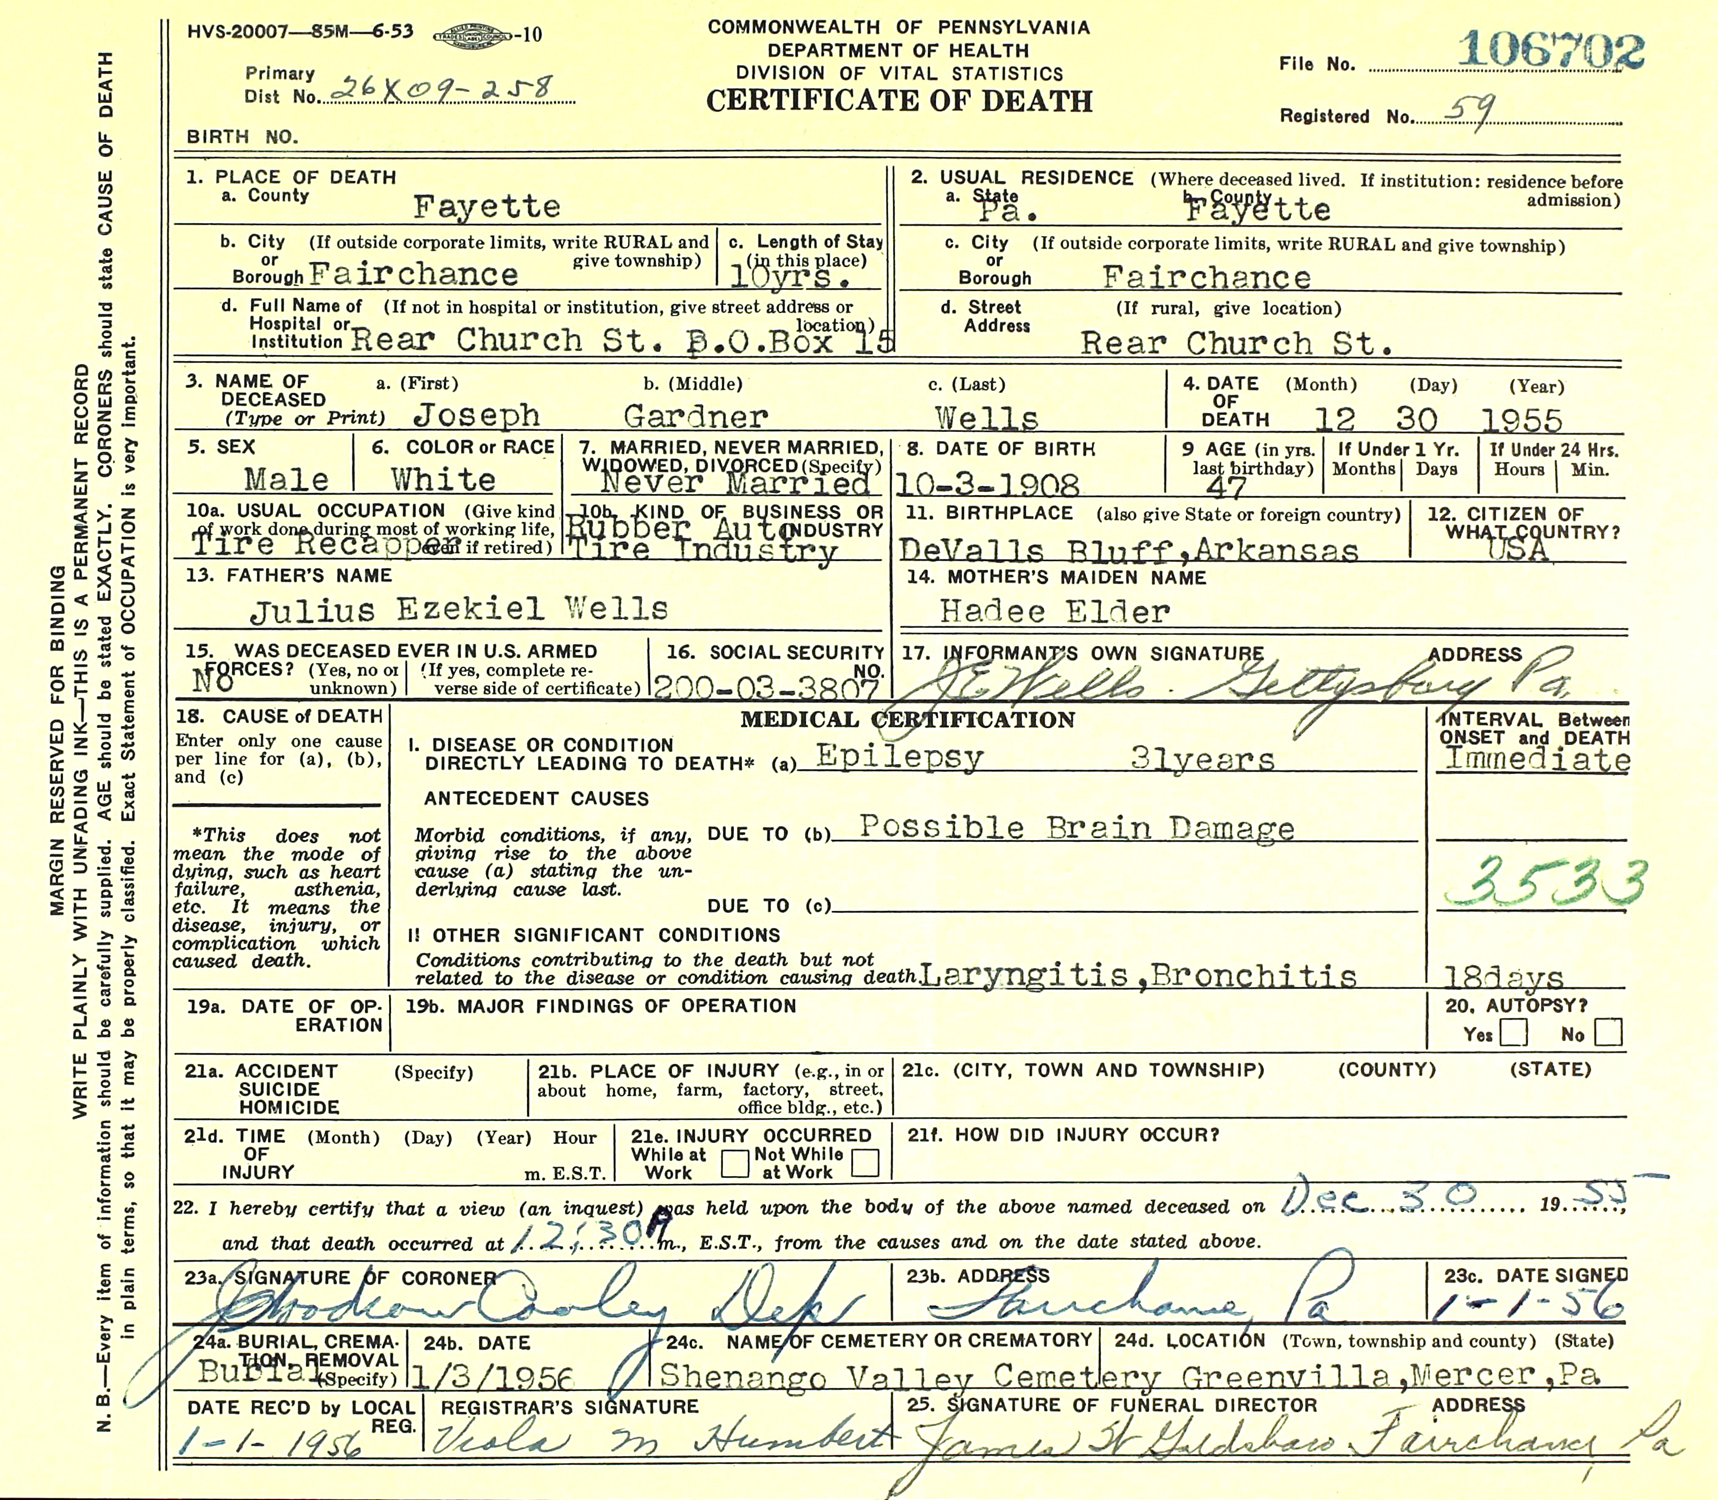 HVS-20007—85M—6-53 -10
COMMONWEALTH OF PENNSYLVANIA
DEPARTMENT OF HEALTH
DIVISION OF VITAL STATISTICS
CERTIFICATE OF DEATH
Primary
Dist No. 26X09-258
File No. 106702
Registered No. 59
BIRTH NO.
MARGIN RESERVED FOR BINDING
WRITE PLAINLY WITH UNFADING INK—THIS IS A PERMANENT RECORD
N. B.—Every item of information should be carefully supplied. AGE should be stated EXACTLY. CORONERS should state CAUSE OF DEATH
in plain terms, so that it may be properly classified. Exact Statement of OCCUPATION is very important.
1. PLACE OF DEATH
a. County Fayette
b. City (If outside corporate limits, write RURAL and
or give township)
Borough Fairchance
c. Length of Stay
(in this place)
10yrs.
d. Full Name of (If not in hospital or institution, give street address or
Hospital or location)
Institution Rear Church St. B.O.Box 15
2. USUAL RESIDENCE (Where deceased lived. If institution: residence before
admission)
a. State Pa. b. County Fayette
c. City (If outside corporate limits, write RURAL and give township)
or
Borough Fairchance
d. Street (If rural, give location)
Address Rear Church St.
3. NAME OF a. (First) b. (Middle) c. (Last)
DECEASED
(Type or Print) Joseph Gardner Wells
4. DATE (Month) (Day) (Year)
OF
DEATH 12 30 1955
5. SEX
Male
6. COLOR or RACE
White
7. MARRIED, NEVER MARRIED,
WIDOWED, DIVORCED (Specify)
Never Married
8. DATE OF BIRTH
10-3-1908
9 AGE (in yrs.
last birthday)
47
If Under 1 Yr.
Months Days
If Under 24 Hrs.
Hours Min.
10a. USUAL OCCUPATION (Give kind
of work done during most of working life,
even if retired)
Tire Recapper
10b. KIND OF BUSINESS OR
INDUSTRY
Rubber Auto
Tire Industry
11. BIRTHPLACE (also give State or foreign country)
DeValls Bluff,Arkansas
12. CITIZEN OF
WHAT COUNTRY?
USA
13. FATHER'S NAME
Julius Ezekiel Wells
14. MOTHER'S MAIDEN NAME
Hadee Elder
15. WAS DECEASED EVER IN U.S. ARMED
FORCES? (Yes, no or (If yes, complete re-
unknown) verse side of certificate)
No
16. SOCIAL SECURITY
NO.
200-03-3807
17. INFORMANT'S OWN SIGNATURE ADDRESS
J E Wells. Gettysburg Pa.
18. CAUSE of DEATH
Enter only one cause
per line for (a), (b),
and (c)
*This does not
mean the mode of
dying, such as heart
failure, asthenia,
etc. It means the
disease, injury, or
complication which
caused death.
MEDICAL CERTIFICATION
INTERVAL Between
ONSET and DEATH
I. DISEASE OR CONDITION
DIRECTLY LEADING TO DEATH* (a) Epilepsy 31years Immediate
ANTECEDENT CAUSES
Morbid conditions, if any,
giving rise to the above
cause (a) stating the un-
derlying cause last.
DUE TO (b) Possible Brain Damage
3533
DUE TO (c)
II OTHER SIGNIFICANT CONDITIONS
Conditions contributing to the death but not
related to the disease or condition causing death. Laryngitis,Bronchitis 18days
19a. DATE OF OP-
ERATION
19b. MAJOR FINDINGS OF OPERATION
20. AUTOPSY?
Yes No
21a. ACCIDENT (Specify)
SUICIDE
HOMICIDE
21b. PLACE OF INJURY (e.g., in or
about home, farm, factory, street,
office bldg., etc.)
21c. (CITY, TOWN AND TOWNSHIP) (COUNTY) (STATE)
21d. TIME (Month) (Day) (Year) Hour
OF
INJURY m. E.S.T.
21e. INJURY OCCURRED
While at Not While
Work at Work
21f. HOW DID INJURY OCCUR?
22. I hereby certify that a view (an inquest) was held upon the body of the above named deceased on Dec 30 1955,
and that death occurred at 12:30 A m., E.S.T., from the causes and on the date stated above.
23a. SIGNATURE OF CORONER
Woodrow Cooley Dep
23b. ADDRESS
Fairchance, Pa
23c. DATE SIGNED
1-1-56
24a. BURIAL, CREMA-
TION, REMOVAL
(Specify)
Burial
24b. DATE
1/3/1956
24c. NAME OF CEMETERY OR CREMATORY
Shenango Valley Cemetery
24d. LOCATION (Town, township and county) (State)
Greenvilla,Mercer,Pa
DATE REC'D by LOCAL
REG.
1-1-1956
REGISTRAR'S SIGNATURE
Viola M Humbert
25. SIGNATURE OF FUNERAL DIRECTOR ADDRESS
James W Goldsboro Fairchance, Pa